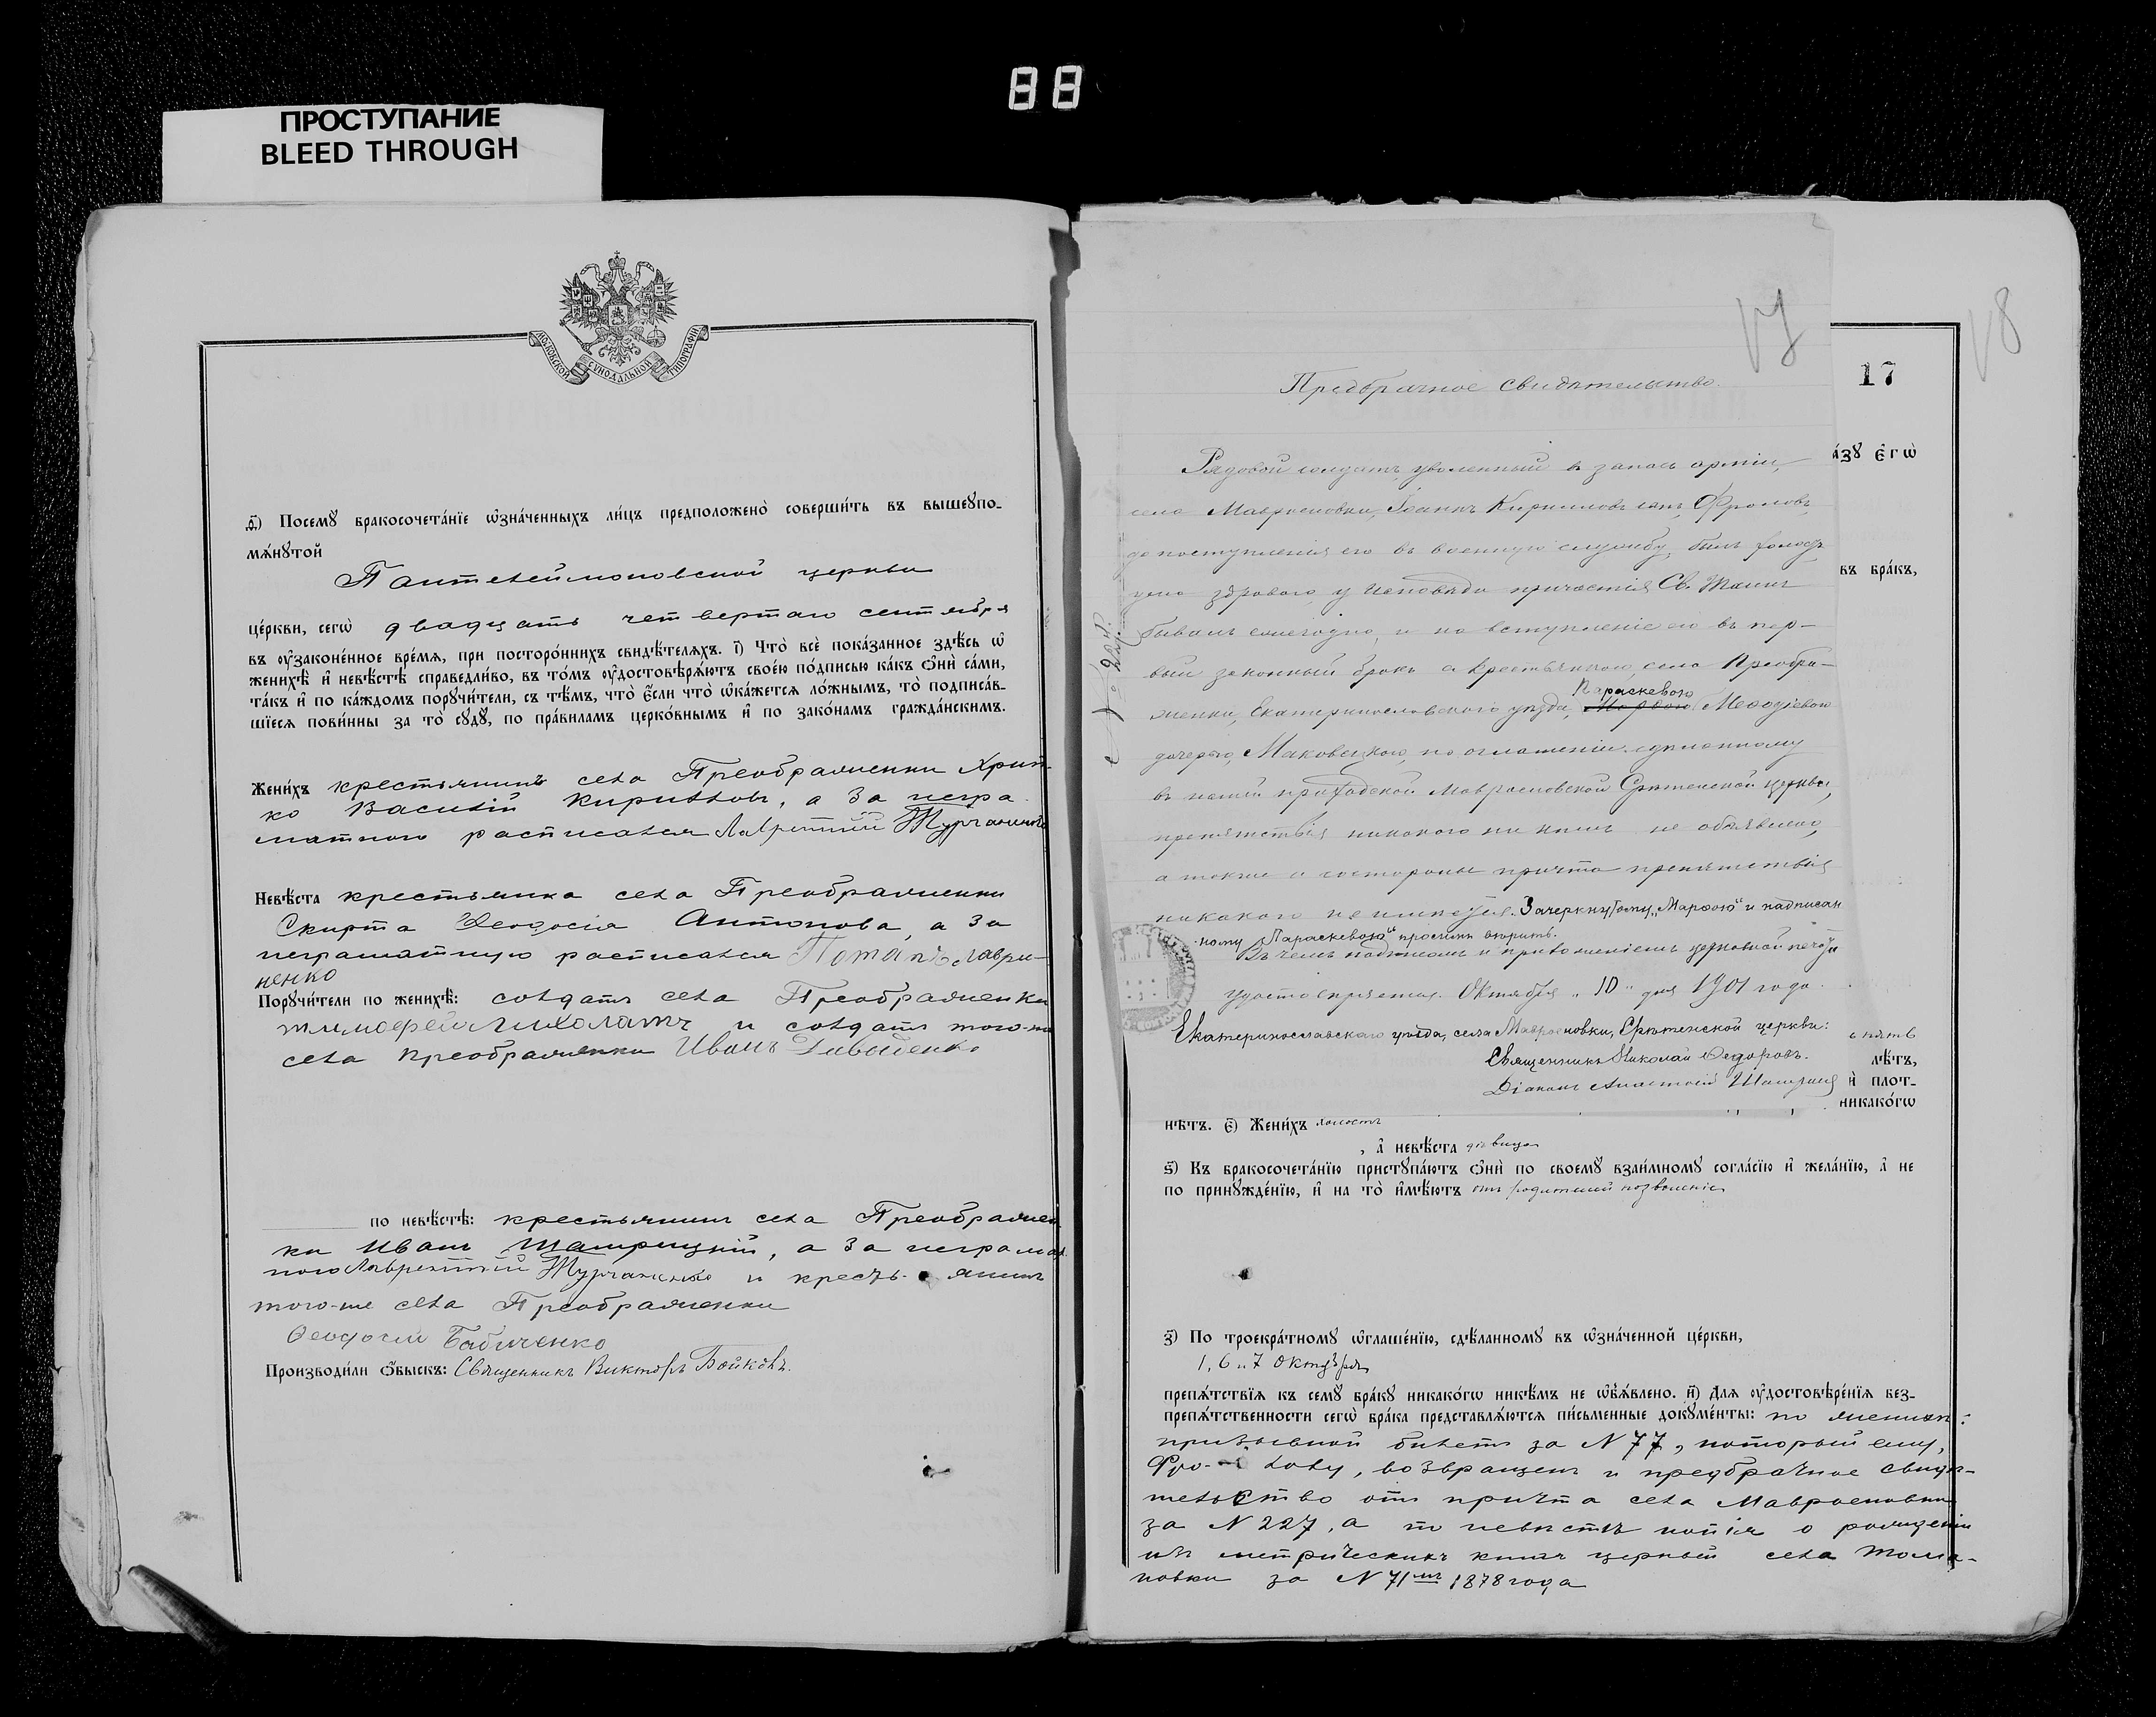 88
ПРОСТУПАНИЕ
BLEED THROUGH
МОСКОВСКОЙ СУНОДАЛЬНОЙ ТИПОГРАФІИ
д҃) Посемꙋ бракосочета́нїе ѡ҆зна́ченныхъ ли́цъ предположено̀ соверши́ть въ вышеꙋпо-
мѧ́нꙋтой
Пантелеймоновской церкви
це́ркви, сегѡ̀ двадцать четвертаго сентября
въ ᲂу҆законе́нное вре́мѧ, при посторо́ннихъ свидѣ́телѧхъ. і҃) Что̀ всѐ пока́занное здѣ́сь ѡ҆
женихѣ̀ и҆ невѣ́стѣ справедли́во, въ то́мъ ᲂу҆достовѣрѧ́ютъ свое́ю по́дписью ка́къ ѻ҆нѝ са́ми,
та́къ и҆ по ка́ждомъ порꙋчи́тели, съ тѣ́мъ, что̀ є҆́сли что̀ ѡ҆ка́жетсѧ ло́жнымъ, то̀ подписа́в-
шїесѧ пови́нны за то̀ сꙋдꙋ̀, по пра́виламъ церко́внымъ и҆ по зако́намъ гражда́нскимъ.
Жени́хъ крестьянинъ села Преображенки Хрип-
ко Василій Кирилловъ, а за негра-
мотного расписался Лаврентій Журчаненко
Невѣ́ста крестьянка села Преображенки
Скирта Феодосія Антонова, а за
неграмотную расписался Потапъ Лаври-
ненко
Порꙋчи́тели по женихѣ̀: солдатъ села Преображенки
Тимофей и солдатъ того-же
села Преображенки Иванъ Давыденко
по невѣ́стѣ: крестьянинъ села Преображен-
ки Иванъ а за неграмот-
ного Лаврентій Журчаненко и кресть-янинъ
того-же села Преображенки
Феодосій Бабиченко
Производи́ли ѻ҆́быскъ: Священникъ Викторъ Бойковъ.
17
18
17
Предбрачное свидѣтельство.
Рядовой солдатъ, уволенный въ запасъ арміи,
села Мавроеновки, Іоаннъ Кирилловъ сынъ Фроловъ,
до поступленія его въ военную службу, былъ холостъ
ума здроваго, у исповѣди причастія Св. Таинъ
бывалъ ежегодно, и на вступленіе его въ пер-
вый законный бракъ съ крестьянкою села Преобра-
Параскевою
женки, Екатеринославского уѣзда, Марфою Меѳодіевою
дочерью, Маковецкою, по оглашеніи сдѣланному
въ нашей приходской Мавроеновской Срѣтенской церкви,
препятствія никакого ни кѣмъ не объявлено,
а также и со стороны причта препятствія
никакого не имѣется. Зачеркнутому „Марфою“ и надписан
ному „Параскевою“ просимъ вѣрить.
Въ чемъ подписомъ и приложеніемъ церковной печати
удостовѣряемъ. Октября „10“ дня 1901 года.
Екатеринославскаго уѣзда, села Мавроеновки, Срѣтенской церкви:
Священникъ Николай Федоровъ.
Діаконъ Анастасій
а́зꙋ є҆гѡ̀
въ бра́къ,
ь пять
лѣ́тъ,
и҆ плот-
никако́гѡ
нѣ́тъ. є҃) Жени́хъ холостъ
, а҆ невѣ́ста дѣвица
ѕ҃) Къ бракосочета́нїю пристꙋпа́ютъ ѻ҆нѝ по своемꙋ̀ взаи́мномꙋ согла́сїю и҆ жела́нїю, а҆ не
по принꙋжде́нїю, и҆ на то̀ и҆мѣ́ютъ отъ родителей позволеніе
з҃) По троекра́тномꙋ ѡ҆глаше́нїю, сдѣ́ланномꙋ въ ѡ҆зна́ченной це́ркви,
1, 6 и 7 Октября
препѧ́тствїѧ къ семꙋ̀ бра́кꙋ никако́гѡ никѣ́мъ не ѡ҆б̾ѧ́влено. и҃) Длѧ ᲂу҆достовѣре́нїѧ без-
препѧ́тственности сегѡ̀ бра́ка представлѧ́ютсѧ пи́сьменные докꙋме́нты: по женихѣ:
призывной билетъ за N 77, который ему,
Фро-лову, возвращенъ и предбрачное свидѣ-
тельство отъ причта села Мавроеновки
за N 227, а по невѣстѣ копія о рожденіи
изъ метрическихъ книгъ церкви села Тома-
ковки за N 71мъ 1878 года